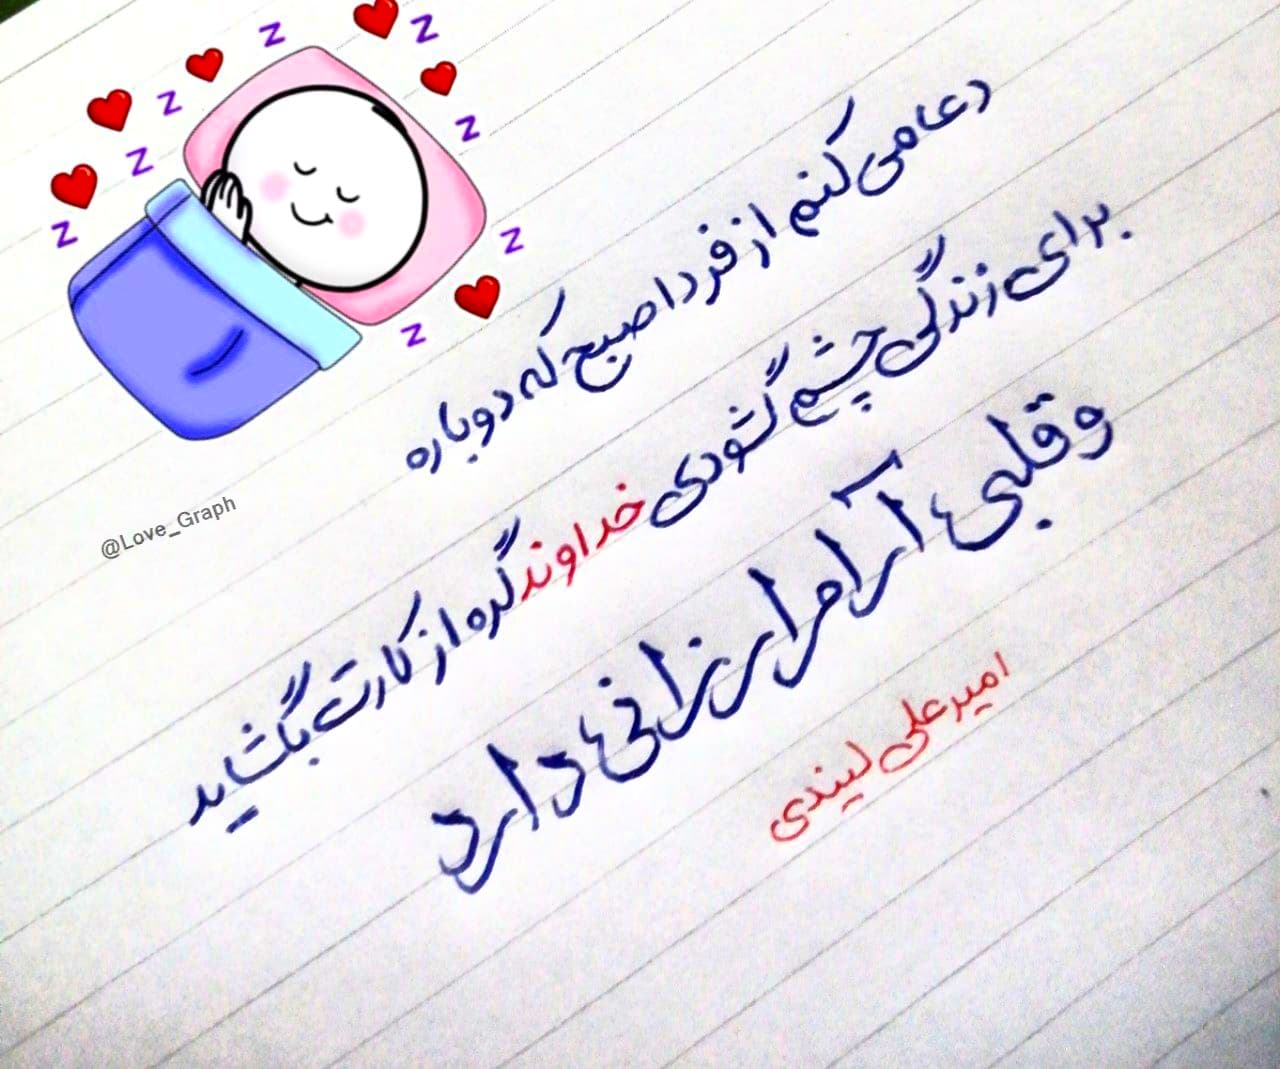 دعا می کنم از فردا صبح که دوباره
برای زندگی چشم گشودی خداوند گره از کارت بگشاید
و قلبی آرام ارزانی دارد
امیرعلی لیندی
@Love_Graph
z
z
z
z
z
z
z
z